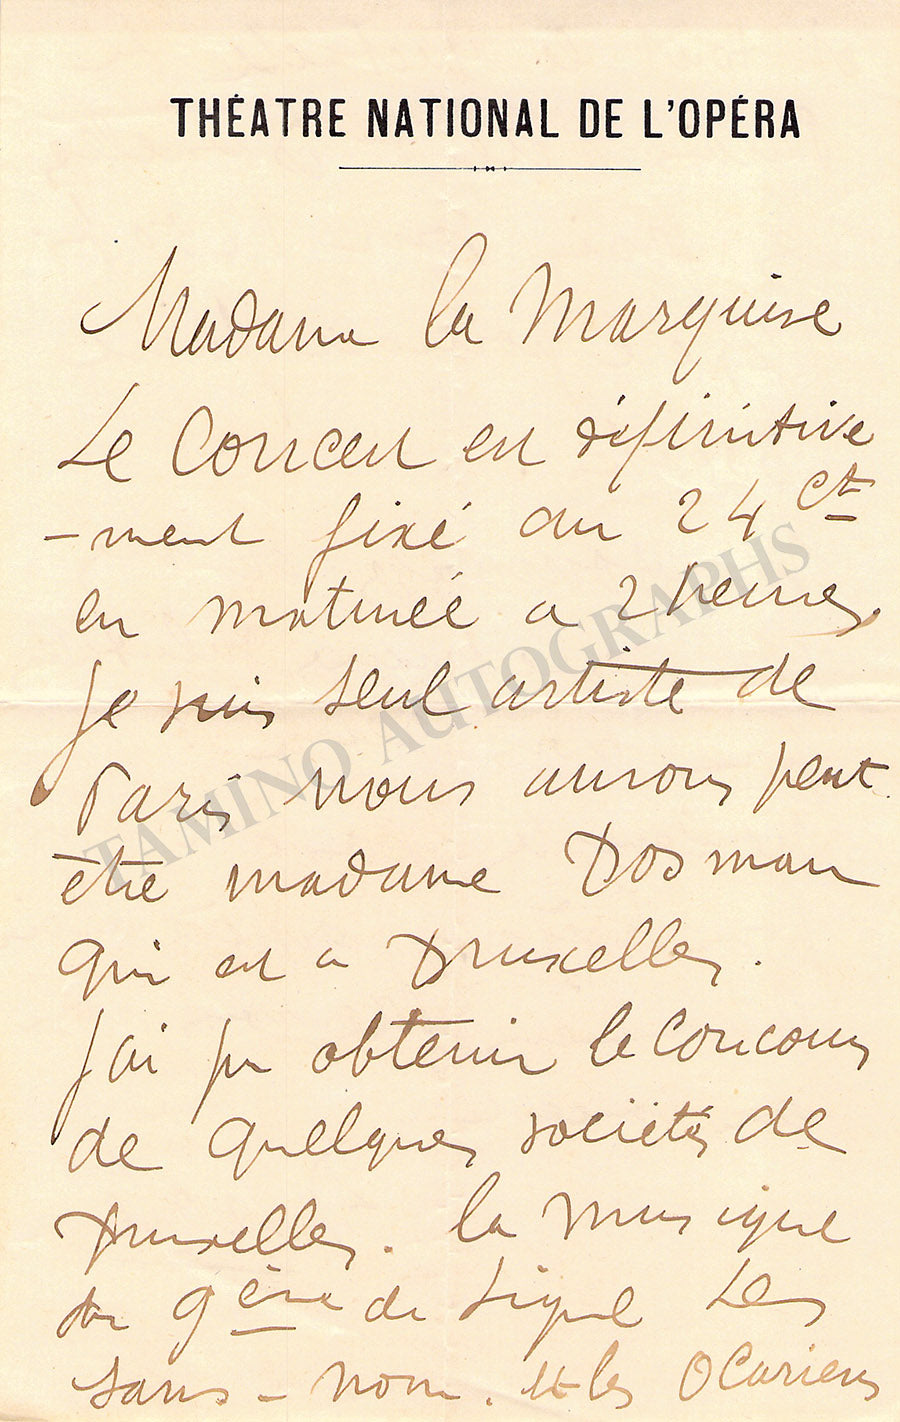 THÉATRE NATIONAL DE L'OPÉRA
Madame la Marquise
Le Concert est définitive
-ment fixé au 24 Ct
en matinée a 2 heures.
Je suis seul artiste de
Paris nous aurons peut
être madame Bosman
qui est a Bruxelles.
J'ai pu obtenir le concours
de quelques sociétés de
Bruxelles. la musique
du 9ème de Ligne Les
sans-nom. et les Ocariens
TAMINO AUTOGRAPHS